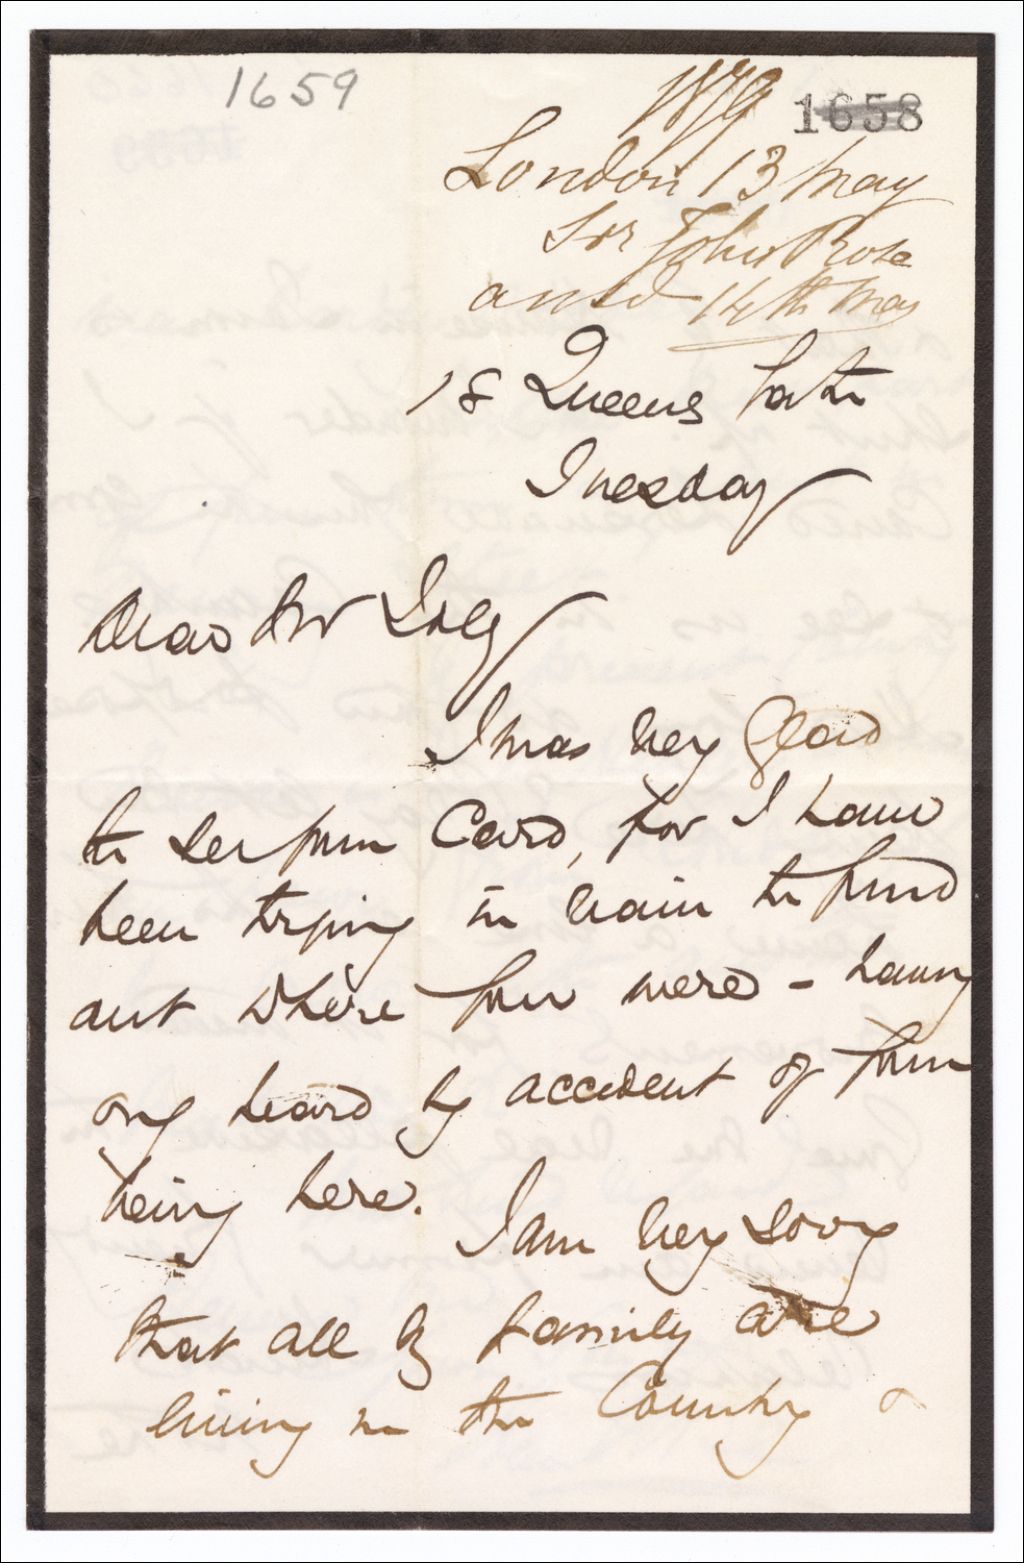 1659
1879
1658
London 13 May
Sir John Rose
ansd 14th May
18 Queens Gate
Tuesday
Dear Mr Tilley
I was very glad
to see your Card, for I have
been trying in vain to find
out where you were - having
only heard by accident of your
being here. I am very sorry
that all my family are
living in the Country &